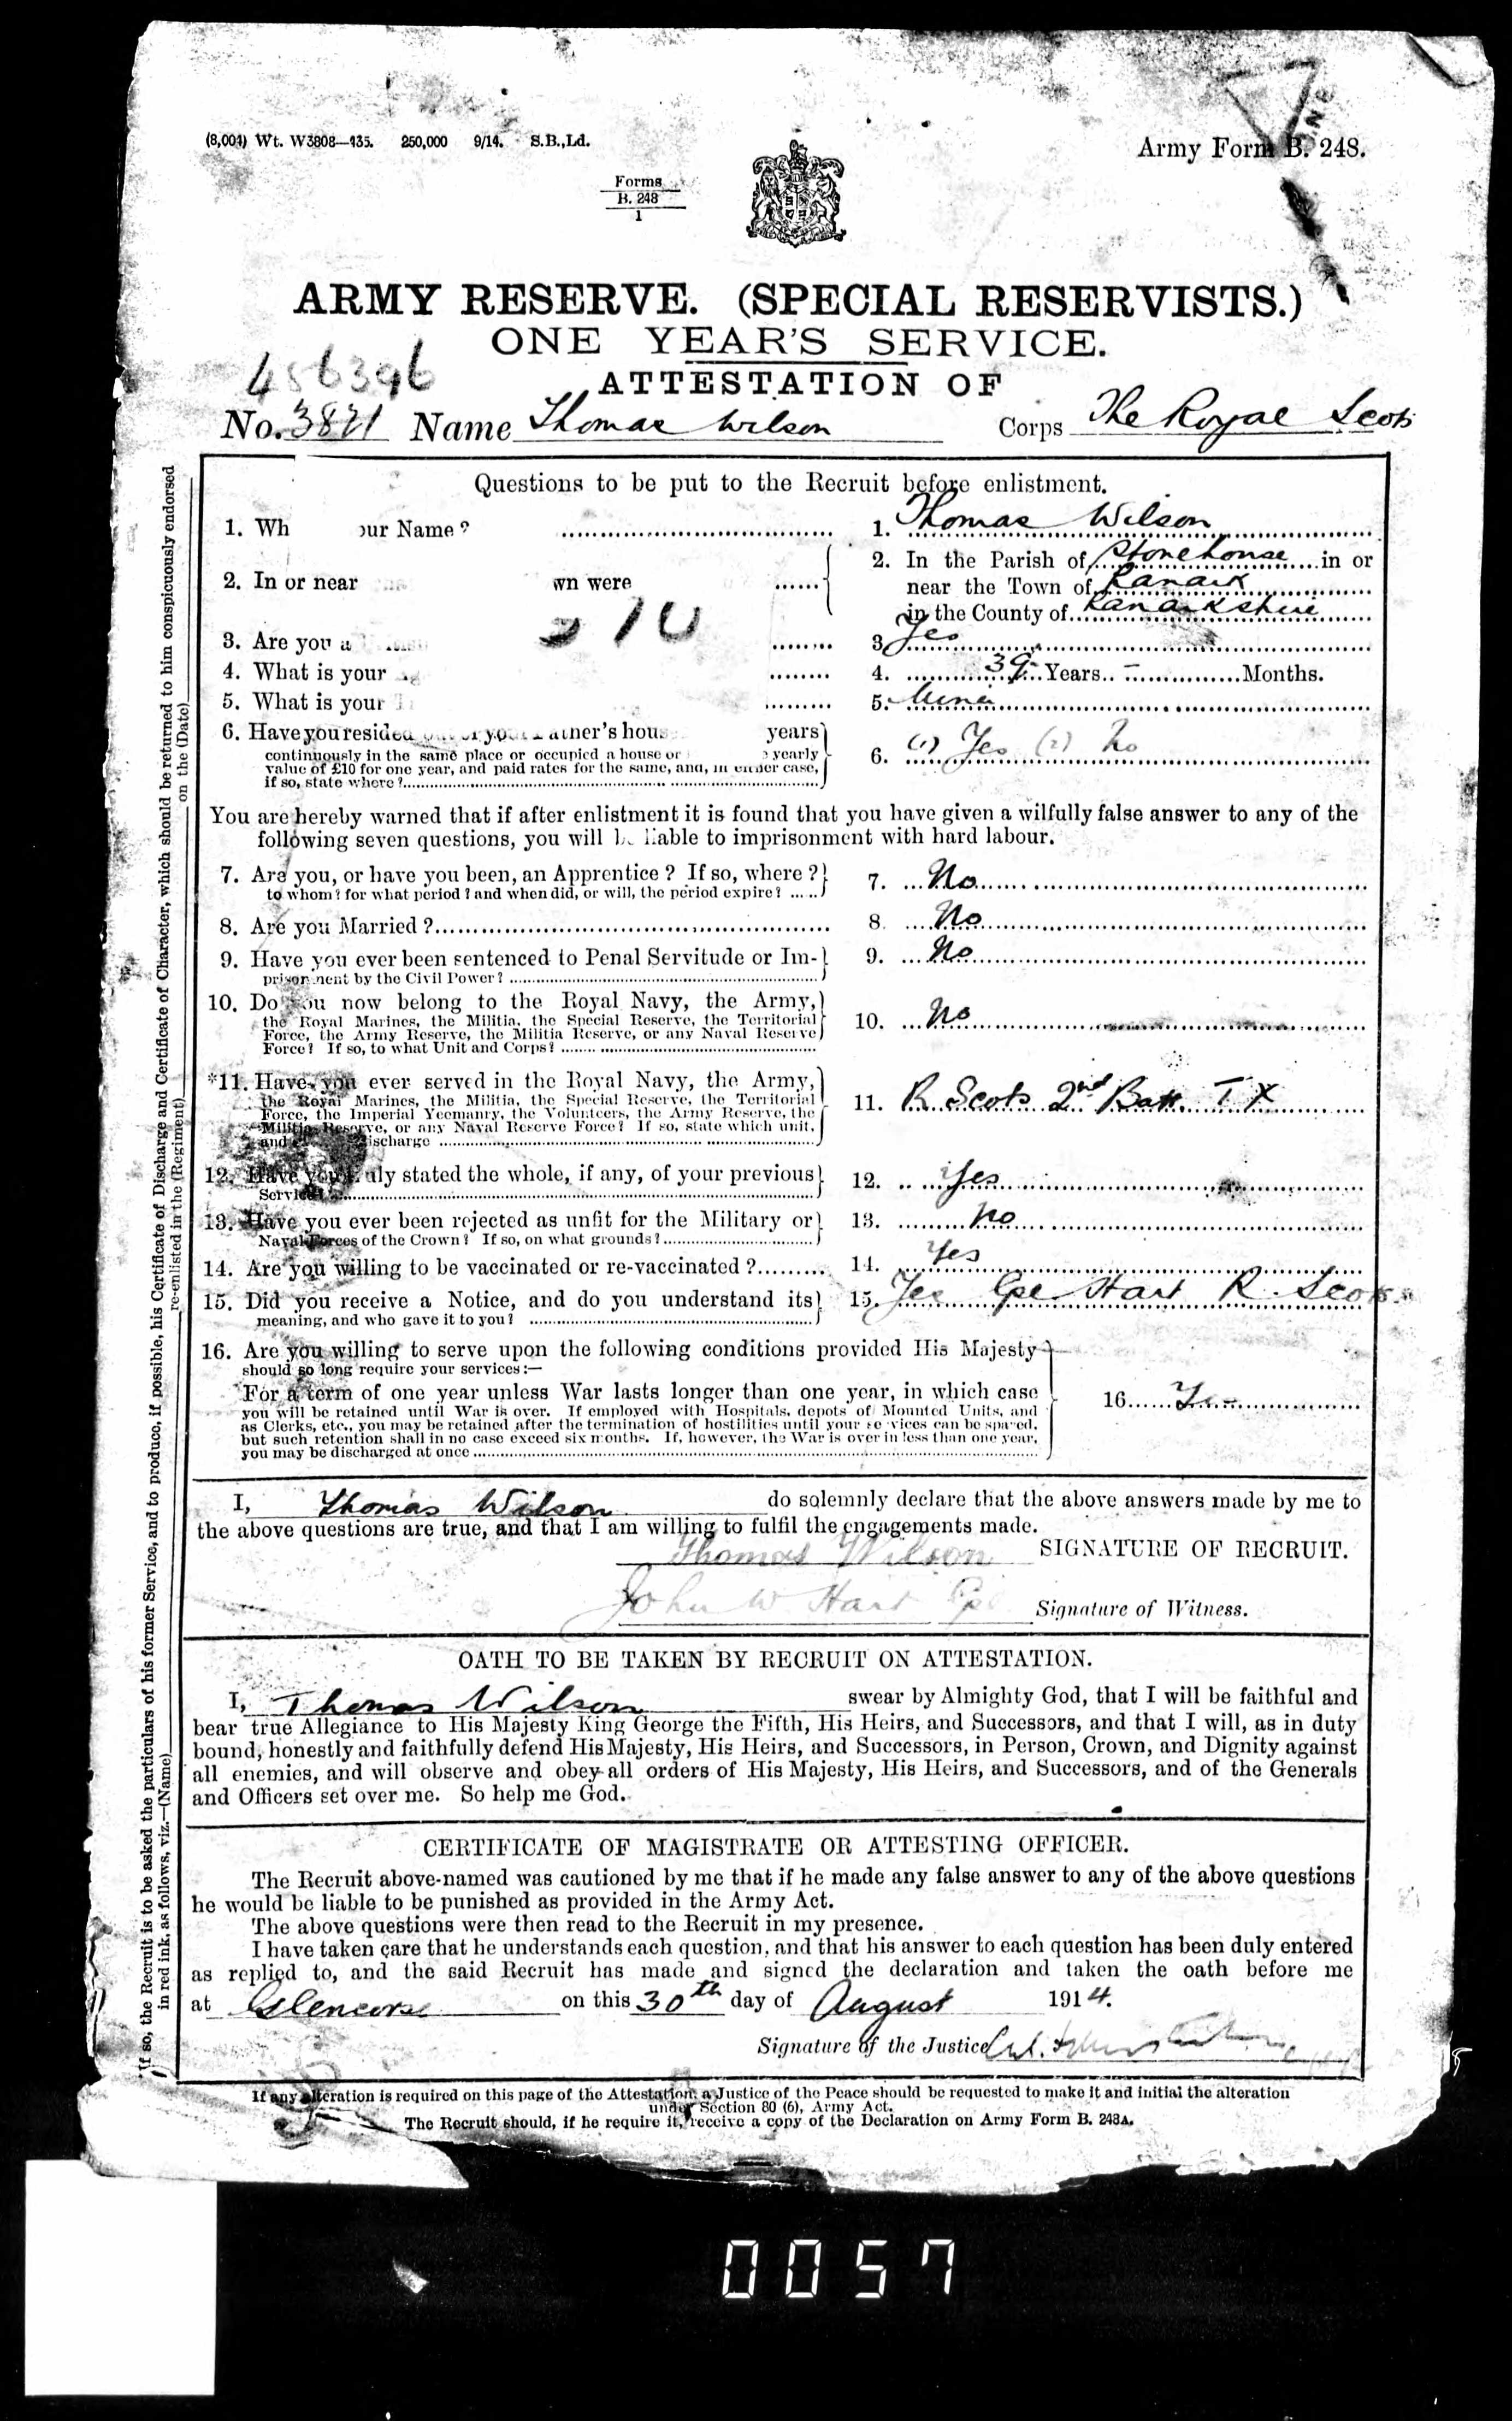 (8,004) Wt. W3808—435. 250,000 9/14. S.B.,Ld.
Army Form B. 248.
Forms
B. 248
1
ARMY RESERVE. (SPECIAL RESERVISTS.)
ONE YEAR'S SERVICE.
456396
ATTESTATION OF
No. 3821 Name Thomas Wilson Corps The Royal Scots
Questions to be put to the Recruit before enlistment.
1. Wh our Name? 1. Thomas Wilson
2. In or near wn were 2. In the Parish of Stonehouse in or
near the Town of Lanark
in the County of Lanarkshire
3. Are you a 3. Yes
4. What is your 4. 39 Years – Months.
5. What is your 5. Miner
6. Have you resided your Father's hous years
continuously in the same place or occupied a house or yearly
value of £10 for one year, and paid rates for the same, and, in either case,
if so, state where?
6. (1) Yes (2) No
You are hereby warned that if after enlistment it is found that you have given a wilfully false answer to any of the
following seven questions, you will be liable to imprisonment with hard labour.
7. Are you, or have you been, an Apprentice? If so, where?
to whom? for what period? and when did, or will, the period expire?
7. No
8. Are you Married? 8. No
9. Have you ever been sentenced to Penal Servitude or Im-
prisonment by the Civil Power?
9. No
10. Do you now belong to the Royal Navy, the Army,
the Royal Marines, the Militia, the Special Reserve, the Territorial
Force, the Army Reserve, the Militia Reserve, or any Naval Reserve
Force? If so, to what Unit and Corps?
10. No
*11. Have you ever served in the Royal Navy, the Army,
the Royal Marines, the Militia, the Special Reserve, the Territorial
Force, the Imperial Yeomanry, the Volunteers, the Army Reserve, the
Militia Reserve, or any Naval Reserve Force? If so, state which unit,
and discharge
11. R Scots 2nd Batt. T X
12. Have you truly stated the whole, if any, of your previous
Service?
12. Yes
13. Have you ever been rejected as unfit for the Military or
Naval Forces of the Crown? If so, on what grounds?
13. No
14. Are you willing to be vaccinated or re-vaccinated? 14. Yes
15. Did you receive a Notice, and do you understand its
meaning, and who gave it to you?
15. Yes Cpl Hart R. Scots
16. Are you willing to serve upon the following conditions provided His Majesty
should so long require your services:—
For a term of one year unless War lasts longer than one year, in which case
you will be retained until War is over. If employed with Hospitals, depots of Mounted Units, and
as Clerks, etc., you may be retained after the termination of hostilities until your services can be spared,
but such retention shall in no case exceed six months. If, however, the War is over in less than one year,
you may be discharged at once
16. Yes
I, Thomas Wilson do solemnly declare that the above answers made by me to
the above questions are true, and that I am willing to fulfil the engagements made.
Thomas Wilson SIGNATURE OF RECRUIT.
John W Hart Cpl Signature of Witness.
OATH TO BE TAKEN BY RECRUIT ON ATTESTATION.
I, Thomas Wilson swear by Almighty God, that I will be faithful and
bear true Allegiance to His Majesty King George the Fifth, His Heirs, and Successors, and that I will, as in duty
bound, honestly and faithfully defend His Majesty, His Heirs, and Successors, in Person, Crown, and Dignity against
all enemies, and will observe and obey all orders of His Majesty, His Heirs, and Successors, and of the Generals
and Officers set over me. So help me God.
CERTIFICATE OF MAGISTRATE OR ATTESTING OFFICER.
The Recruit above-named was cautioned by me that if he made any false answer to any of the above questions
he would be liable to be punished as provided in the Army Act.
The above questions were then read to the Recruit in my presence.
I have taken care that he understands each question, and that his answer to each question has been duly entered
as replied to, and the said Recruit has made and signed the declaration and taken the oath before me
at Glencorse on this 30th day of August 1914.
Signature of the Justice
If any alteration is required on this page of the Attestation, a Justice of the Peace should be requested to make it and initial the alteration
under Section 80 (6), Army Act.
The Recruit should, if he require it, receive a copy of the Declaration on Army Form B. 248A.
If so, the Recruit is to be asked the particulars of his former Service, and to produce, if possible, his Certificate of Discharge and Certificate of Character, which should be returned to him conspicuously endorsed
in red ink, as follows, viz.—(Name) re-enlisted in the (Regiment) on the (Date)
0057